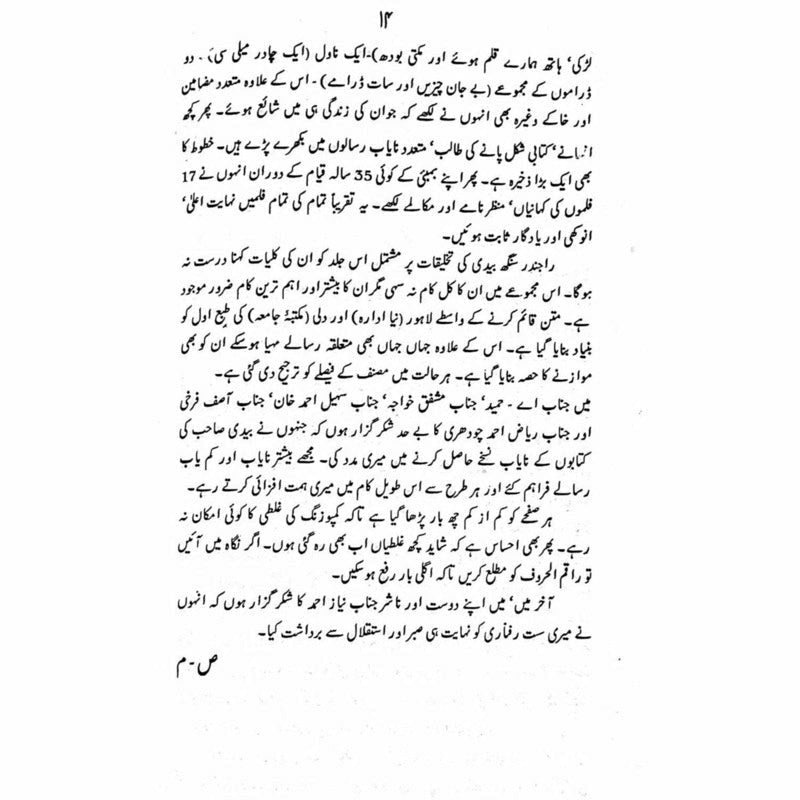 ۱۴
لڑکی‘ ہاتھ ہمارے قلم ہوئے اور مکتی بودھ)۔ایک ناول (ایک چادر میلی سی)۔ دو
ڈراموں کے مجموعے (بے جان چیزیں اور سات ڈرامے)۔ اس کے علاوہ متعدد مضامین
اور خاکے وغیرہ بھی انہوں نے لکھے کہ جو ان کی زندگی ہی میں شائع ہوئے۔ پھر کچھ
افسانے‘ کتابی شکل پانے کی طالب‘ متعدد نایاب رسالوں میں بکھرے پڑے ہیں۔ خطوط کا
بھی ایک بڑا ذخیرہ ہے۔ پھر اپنے بمبئی کے کوئی 35 سالہ قیام کے دوران انہوں نے 17
فلموں کی کہانیاں‘ منظر نامے اور مکالے لکھے۔ یہ تقریباً تمام کی تمام فلمیں نہایت اعلیٰ‘
انوکھی اور یادگار ثابت ہوئیں۔
راجندر سنگھ بیدی کی تخلیقات پر مشتمل اس جلد کو ان کی کلیات کہنا درست نہ
ہوگا۔ اس مجموعے میں ان کا کل کام نہ سہی مگر ان کا بیشتر اور اہم ترین کام ضرور موجود
ہے۔ متن قائم کرنے کے واسطے لاہور (نیا ادارہ) اور دلی (مکتبۂ جامعہ) کی طبع اول کو
بنیاد بنایا گیا ہے۔ اس کے علاوہ جہاں جہاں بھی متعلقہ رسالے مہیا ہوسکے ان کو بھی
موازنے کا حصہ بنایا گیا ہے۔ ہر حالت میں مصنف کے فیصلے کو ترجیح دی گئی ہے۔
میں جناب اے ۔ حمید‘ جناب مشفق خواجہ‘ جناب سہیل احمد خان‘ جناب آصف فرخی
اور جناب ریاض احمد چودھری کا بے حد شکر گزار ہوں کہ جنہوں نے بیدی صاحب کی
کتابوں کے نایاب نسخے حاصل کرنے میں میری مدد کی۔ مجھے بیشتر نایاب اور کم یاب
رسالے فراہم کئے اور ہر طرح سے اس طویل کام میں میری ہمت افزائی کرتے رہے۔
ہر صفحے کو کم از کم چھ بار پڑھا گیا ہے تاکہ کمپوزنگ کی غلطی کا کوئی امکان نہ
رہے۔ پھر بھی احساس ہے کہ شاید کچھ غلطیاں اب بھی رہ گئی ہوں۔ اگر نگاہ میں آئیں
تو راقم الحروف کو مطلع کریں تاکہ اگلی بار رفع ہوسکیں۔
آخر میں‘ میں اپنے دوست اور ناشر جناب نیاز احمد کا شکر گزار ہوں کہ انہوں
نے میری ست رفتاری کو نہایت ہی صبر اور استقلال سے برداشت کیا۔
ص۔م